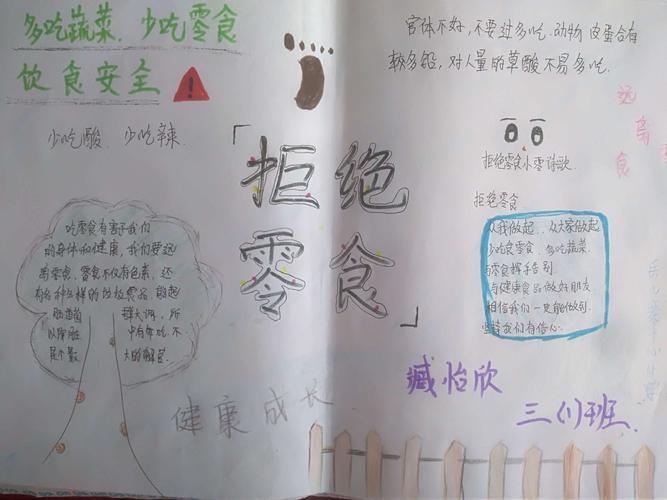 多吃蔬菜、少吃零食
饮食安全
少吃酸、少吃辣.
「拒绝
零食」
官体不好,不要过多吃.动物 皮蛋含有
较多铅,对人量的草酸不易多吃.
远离
食
拒绝零食小零诗歌.
拒绝零食
从我做起、从大家做起
少吃食零食、多吃蔬菜.
与零食挥手告别.
与健康食品做好朋友
相信我们一定能做到.
坚持我们有信心.
吃零食有害于我们
的身体和健康,我们要远
离零食,零食不仅有色素,还
有各种各样的垃圾零食,
健康成长
臧怡欣
三(1)班.